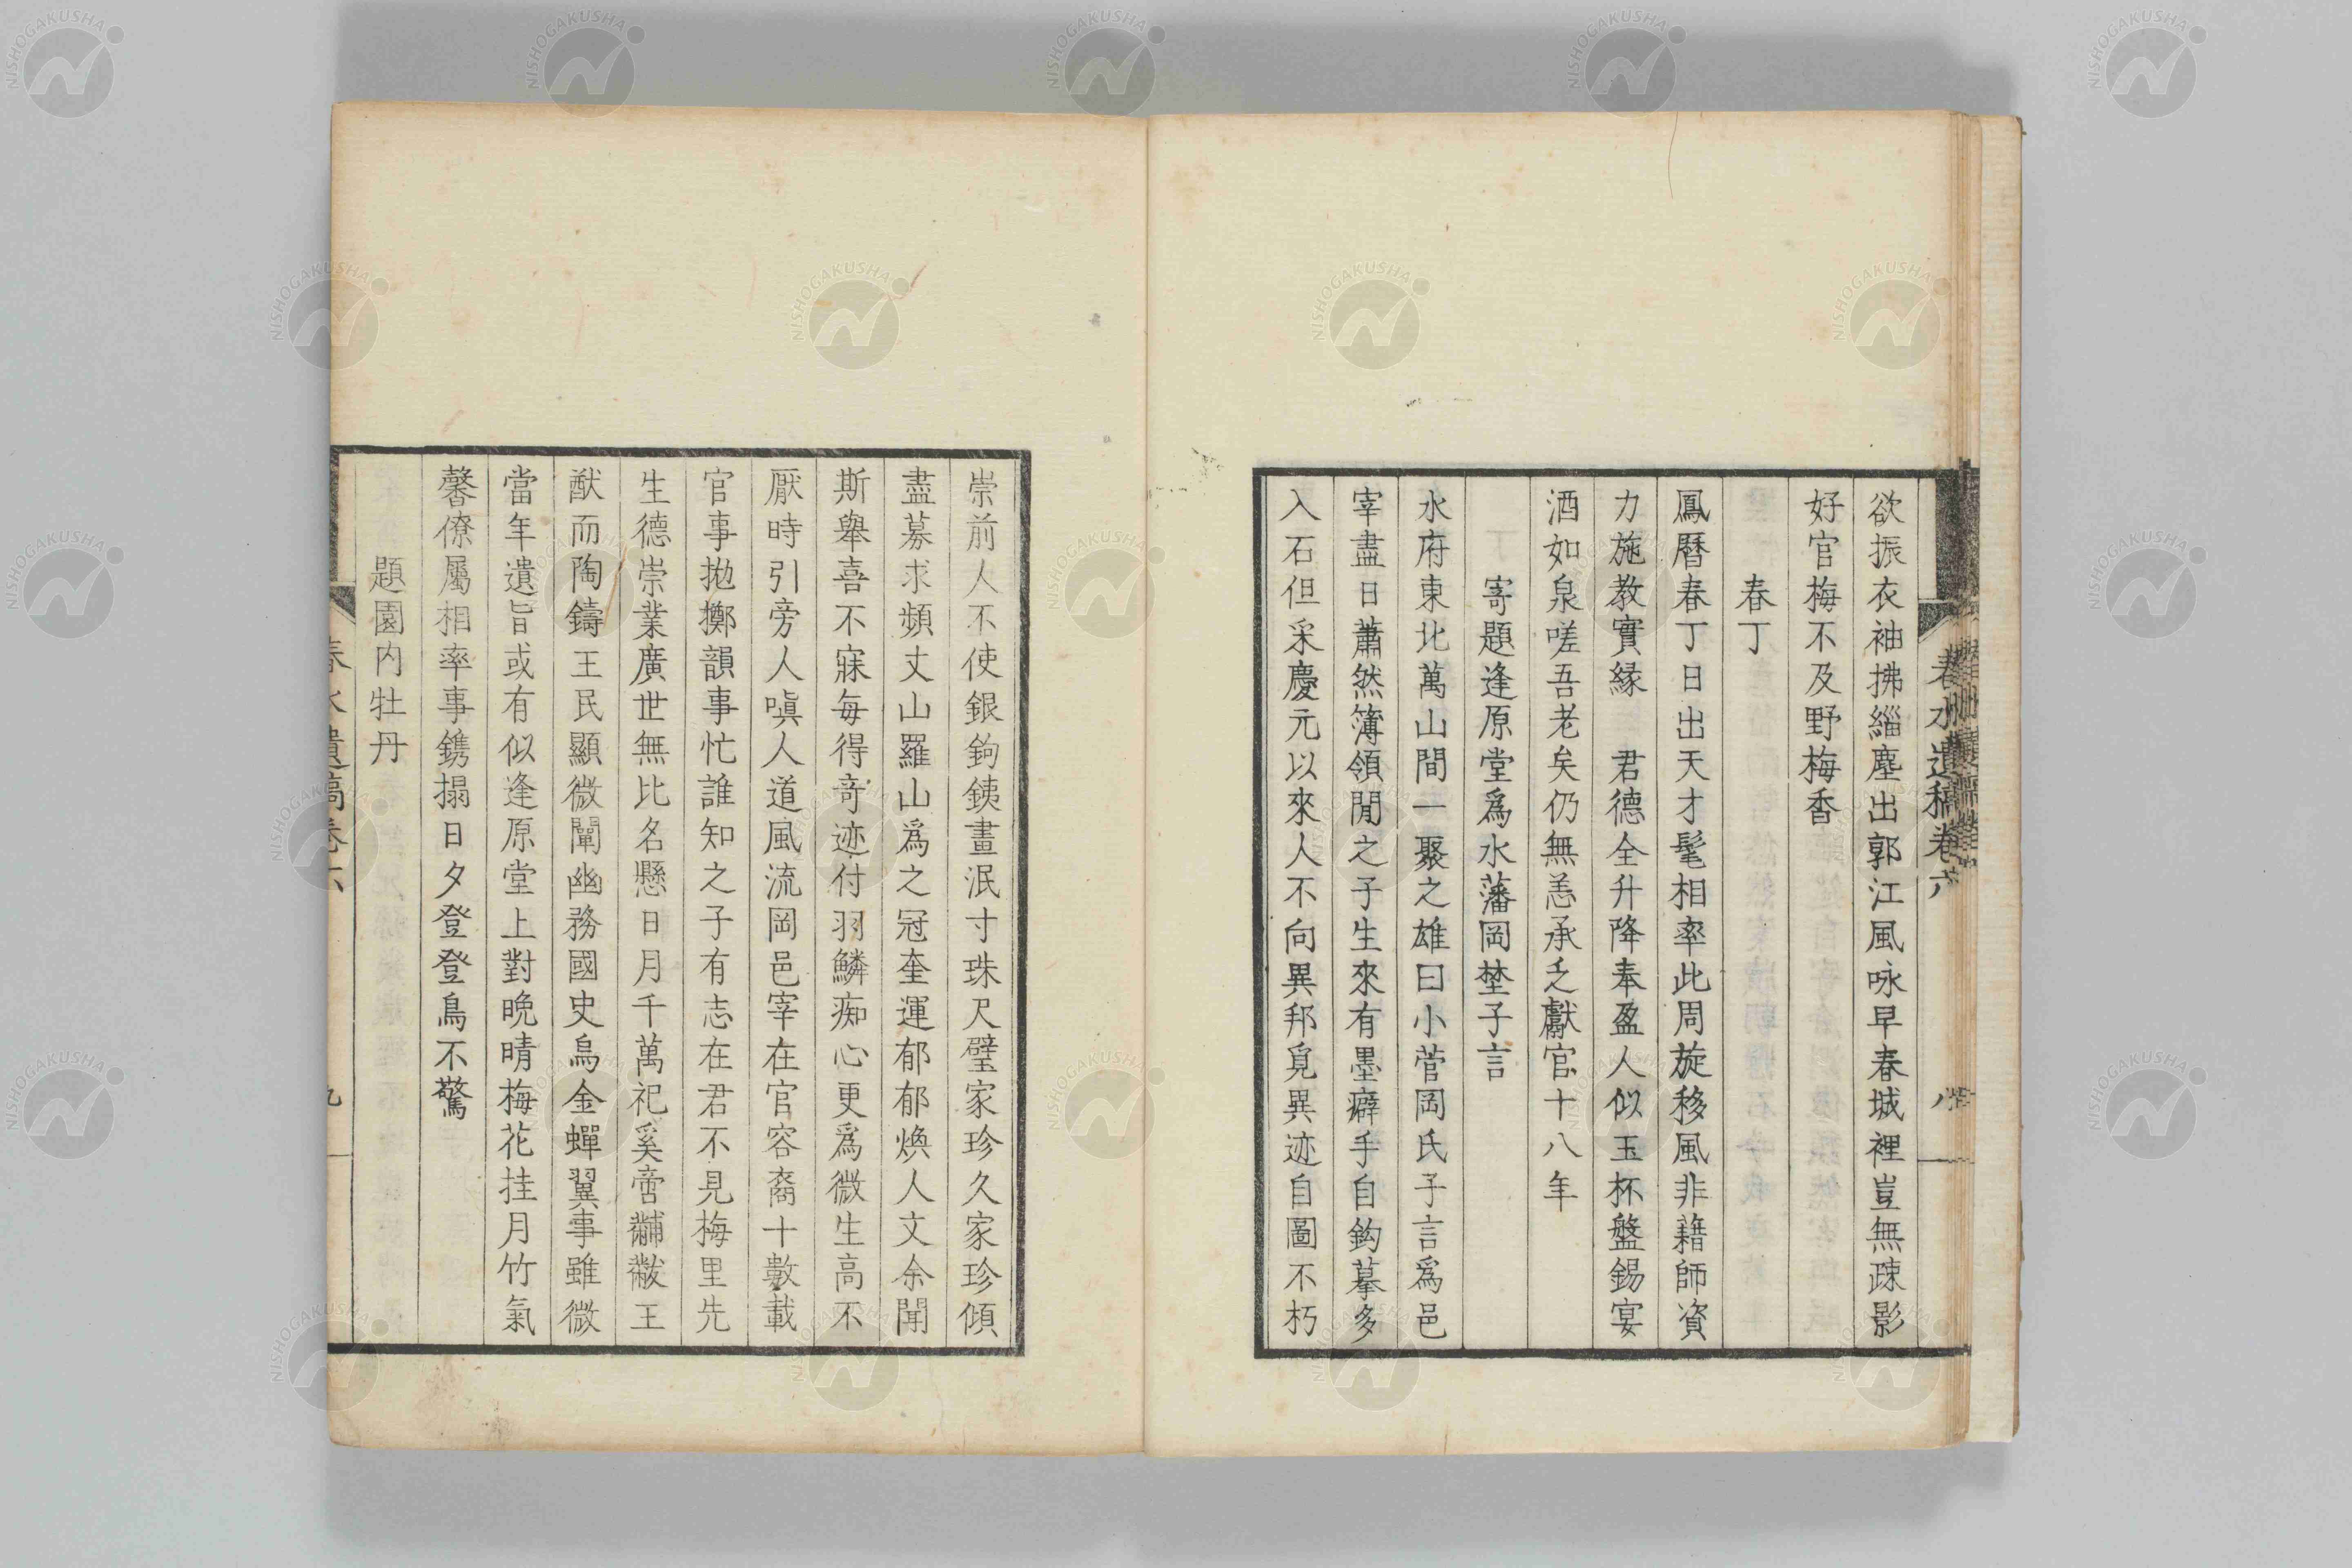 春水遺稿卷六
八
欲振衣袖拂緇塵出郭江風咏早春城裡豈無疎影
好官梅不及野梅香
春丁
鳳曆春丁日出天才髦相率此周旋移風非藉師資
力施教實緣 君德全升降奉盈人似玉杯盤錫宴
酒如泉嗟吾老矣仍無恙承乏獻官十八年
寄題逢原堂爲水藩岡埜子言
水府東北萬山間一聚之雄曰小菅岡氏子言爲邑
宰盡日蕭然簿領閒之子生來有墨癖手自鈎摹多
入石但采慶元以來人不向異邦覓異迹自圖不朽
崇前人不使銀鉤銕畫泯寸珠尺璧家珍久家珍傾
盡募求頻丈山羅山爲之冠奎運郁郁煥人文余聞
斯舉喜不寐每得奇迹付羽鱗痴心更爲微生高不
厭時引旁人嗔人道風流岡邑宰在官容裔十數載
官事拋擲韻事忙誰知之子有志在君不見梅里先
生德崇業廣世無比名懸日月千萬祀奚啻黼黻王
猷而陶鑄王民顯微闡幽務國史烏金蟬翼事雖微
當年遺旨或有似逢原堂上對晩晴梅花挂月竹氣
馨僚屬相率事鐫搨日夕登登鳥不驚
題園内牡丹
春水遺稿卷六
九
NISHOGAKUSHA